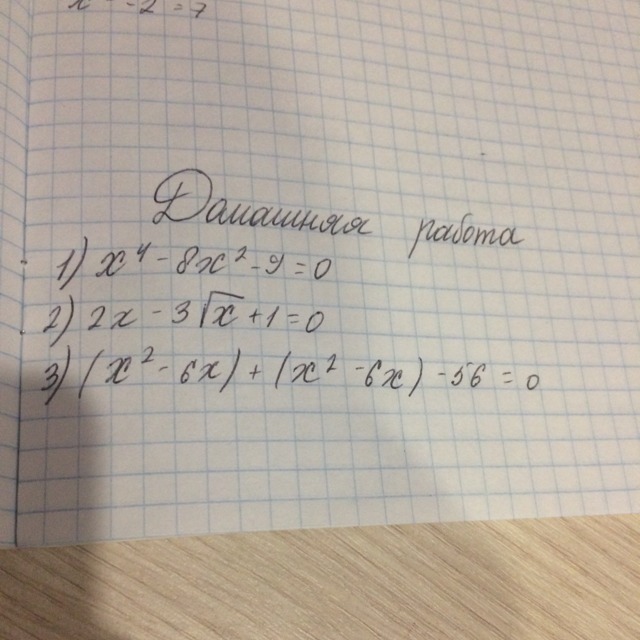 x -2 =7
Дамашняя работа
1) x⁴ - 8x² - 9 = 0
2) 2x - 3√x + 1 = 0
3) (x² - 6x) + (x² - 6x) - 56 = 0